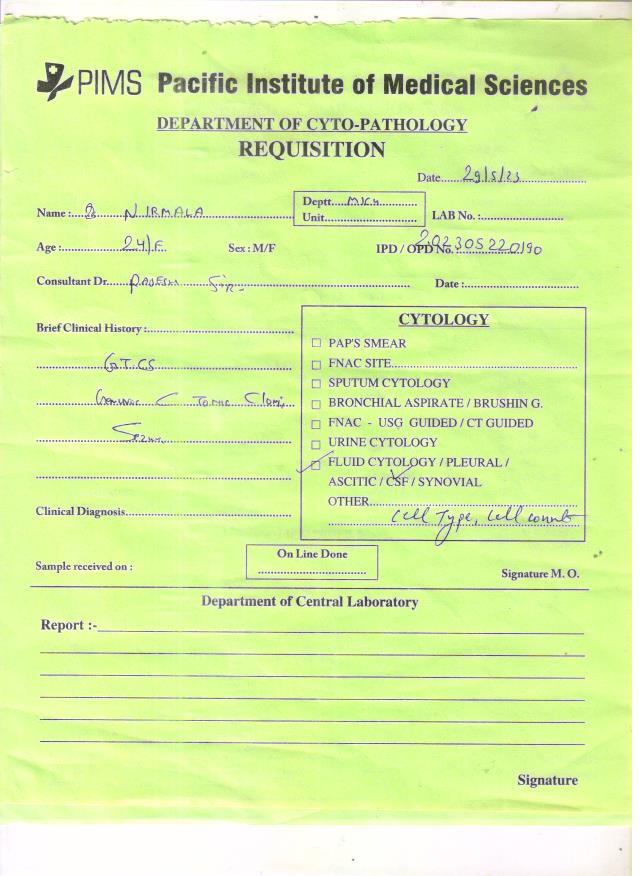 PIMS Pacific Institute of Medical Sciences
DEPARTMENT OF CYTO-PATHOLOGY
REQUISITION
Date 29/5/23
Name : NIRMALA
Deptt.
Unit
LAB No. :
Age : 24/F Sex : M/F IPD / OPD No. : 202305220190
Consultant Dr. Sir Date :
Brief Clinical History :
G.T.C.S
Tonic Clonic
Clinical Diagnosis
CYTOLOGY
PAP'S SMEAR
FNAC SITE
SPUTUM CYTOLOGY
BRONCHIAL ASPIRATE / BRUSHIN G.
FNAC - USG GUIDED / CT GUIDED
URINE CYTOLOGY
FLUID CYTOLOGY / PLEURAL /
ASCITIC / CSF / SYNOVIAL
OTHER
Cell Type, Cell count
Sample received on :
On Line Done
Signature M. O.
Department of Central Laboratory
Report :-
Signature